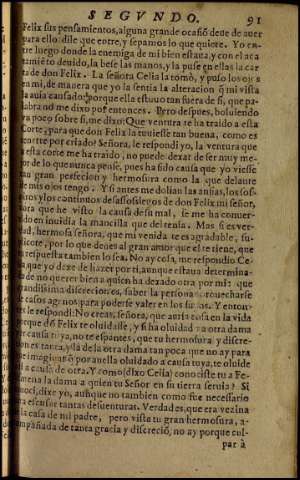 SEGVNDO. 91
Felix sus pensamientos, alguna grande ocasiõ deue de auer
para ello: dile que entre, y sepamos lo que quiere. Yo en-
tre luego donde la enemiga de mi bien estaua, y con el aca
tamiẽto deuido, la bese las manos, y la puse en ellas la car
ta de don Felix. La señora Celia la tomò, y puso los ojos
en mi, de manera que yo la sentia la alteracion q̃ mi vista
la auia causado: porque ella estuuo tan fuera de si, que pa-
labra no me dixo por entonces. Pero despues, boluiendo
vn poco sobre si, me dixo: Que ventura te ha traido a esta
Corte, para que don Felix la tuuiesse tan buena, como es
tenerte por criado? Señora, le respondi yo, la ventura que
a esta Corte me ha traido, no puede dexar de ser muy me-
jor de lo que nunca pense, pues ha sido causa que yo viesse
tan gran perfeccion y hermosura como la que delante
de mis ojos tengo. Y si antes me dolian las ansias, los sos-
piros y los continuos desassossiegos de don Felix mi señor,
aora que he visto la causa de su mal, se me ha conuer-
tido en inuidia la manzilla que del tenia. Mas si es ver-
dad, hermosa señora, que mi venida te es agradable, su-
plicote, por lo que deues al gran amor que el te tiene, que
tu respuesta tambien lo sea. No ay cosa, me respondio Ce-
lia, que yo dexe de hazer por ti, aunque estaua determina-
da de no querer bien a quien ha dexado otra por mi: que
grandissima discrecion es, saber la persona aprouecharse
de casos agenos para poderse valer en los suyos. Y enton-
ces le respondi: No creas, señora, que auria cosa en la vida
porque dõ Felix te oluidasse, y si ha oluidado a otra dama
por causa tuya, no te espantes, que tu hermosura y discre-
cion es tanta, y la de la otra dama tan poca que no ay para
que imaginar q̃ por auella oluidado a causa tuya, te oluide
a ti a causa de otra. Y como (dixo Celia) conociste tu a Fe-
lismena la dama a quien tu Señor en su tierra seruia? Si
conoci, dixe yo, aunque no tambien como fue necessario
para escusar tantas desuenturas. Verdad es, que era vezina
de la casa de mi padre, pero visto tu gran hermosura, a-
compañada de tanta gracia y discreciõ, no ay porque cul-
par à